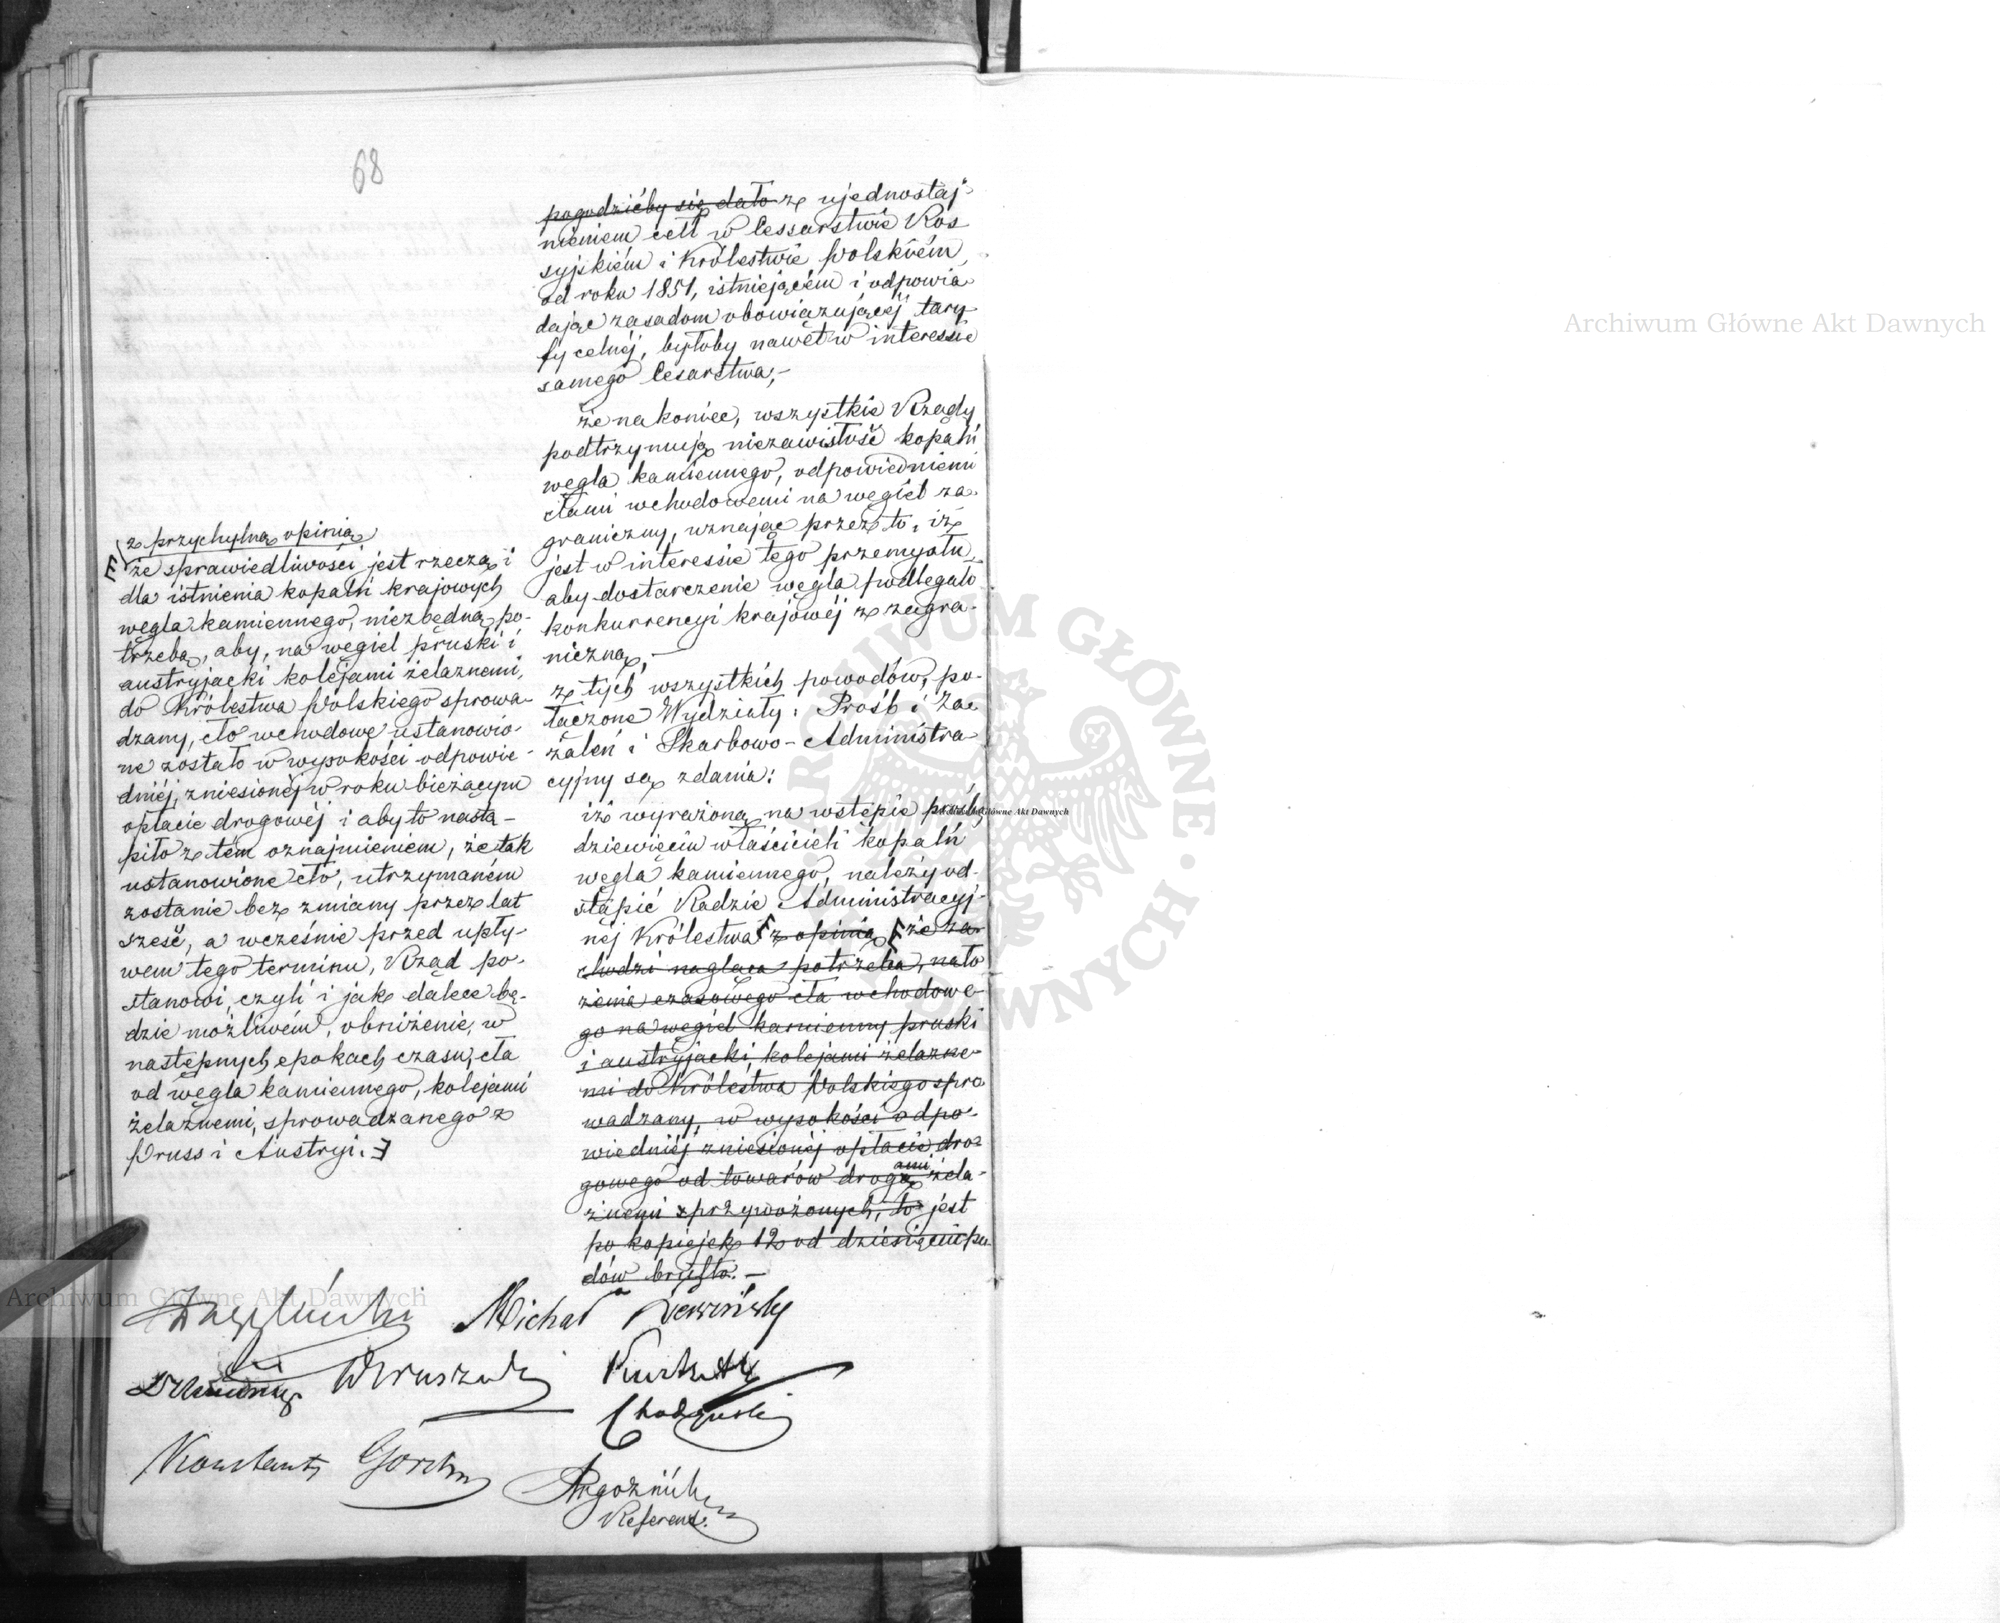 68
pogodzićby się dało z ujednostaj-
nieniem ceł w Cessarstwie Ros
syjskiém i Królestwie Polskiém,
od roku 1851, istniejącém i odpowia
dając zasadom obowiązującéj tary
fy celnéj, byłoby nawet w interessie
samego Cesarstwa,-
że nakoniec, wszystkie Rządy
podtrzymują niezawisłość kopalń
węgla kamiennego, odpowiedniemi
cłami wchodowemi na węgiel za-
graniczny, uznając przez to, iż
jest w interessie tego przemysłu,
aby dostarczenie węgla podlegało
konkurrencyi krajowéj z zagra-
niczną,-
z tych wszystkich powodów, po-
łączone Wydziały: Próśb i Za-
żaleń i Skarbowo-Administra
cyjny są zdania:
iż wyrażoną na wstępie prośbę
dziewięciu właścicieli kopalń
węgla kamiennego, należy od-
stąpić Radzie Administracyj-
néj Królestwa z opinią że za-
chodzi nagląca potrzeba, nało
żenia czasowego cła wchodowe-
go na węgiel kamienny pruski
i austryjacki, kolejami żelazne-
mi do Królestwa Polskiego spro
wadzany, w wysokości odpo-
wiedniéj zniesionéj opłacie dro-
gowego od towarów drogami żela-
znemi przywożonych, to jest
po kopiejek 12 od dziesięciu pu
dów brutto.-
z przychylną opinią
że sprawiedliwości jest rzeczą i
dla istnienia kopalń krajowych
węgla kamiennego, niezbędną po-
trzebą, aby, na węgiel pruski i
austryjacki kolejami żelaznemi,
do Królestwa Polskiego sprowa-
dzany, cło wchodowe ustanowio-
ne zostało w wysokości odpowie-
dniéj, zniesionéj w roku bieżącym
opłacie drogowéj i aby to nastą-
piło z tém oznajmieniem, że tak
ustanowione cło, utrzymaném
zostanie bez zmiany przez lat
sześć, a wcześnie przed upły-
wem tego terminu, Rząd po-
stanowi, czyli i jak dalece bę-
dzie możliwém, obniżenie, w
następnych epokach czasu, cła
od węgla kamiennego, kolejami
żelaznemi, sprowadzanego z
Pruss i Austryi.
Michał
Konstanty Górski
Referent.
Archiwum Główne Akt Dawnych
Archiwum Główne Akt Dawnych
Główne Akt Dawnych
ARCHIWUM GŁÓWNE
DAWNYCH